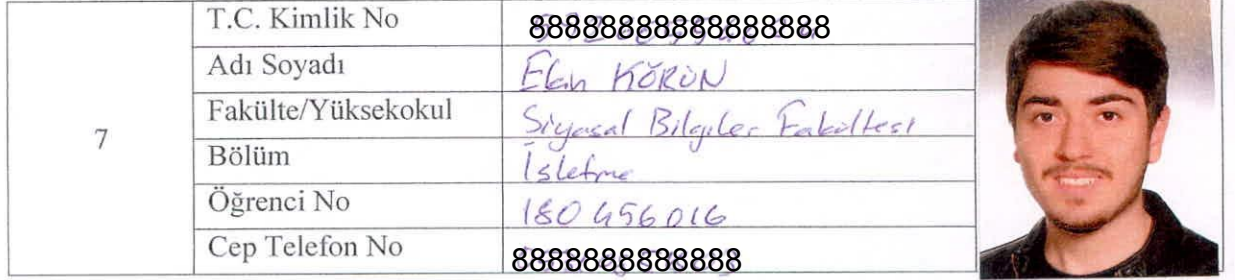 7
T.C. Kimlik No 88888888888888888
Adı Soyadı KÖRÜN
Fakülte/Yüksekokul Siyasal Bilgiler Fakültesi
Bölüm İşletme
Öğrenci No 180456016
Cep Telefon No 8888888888888